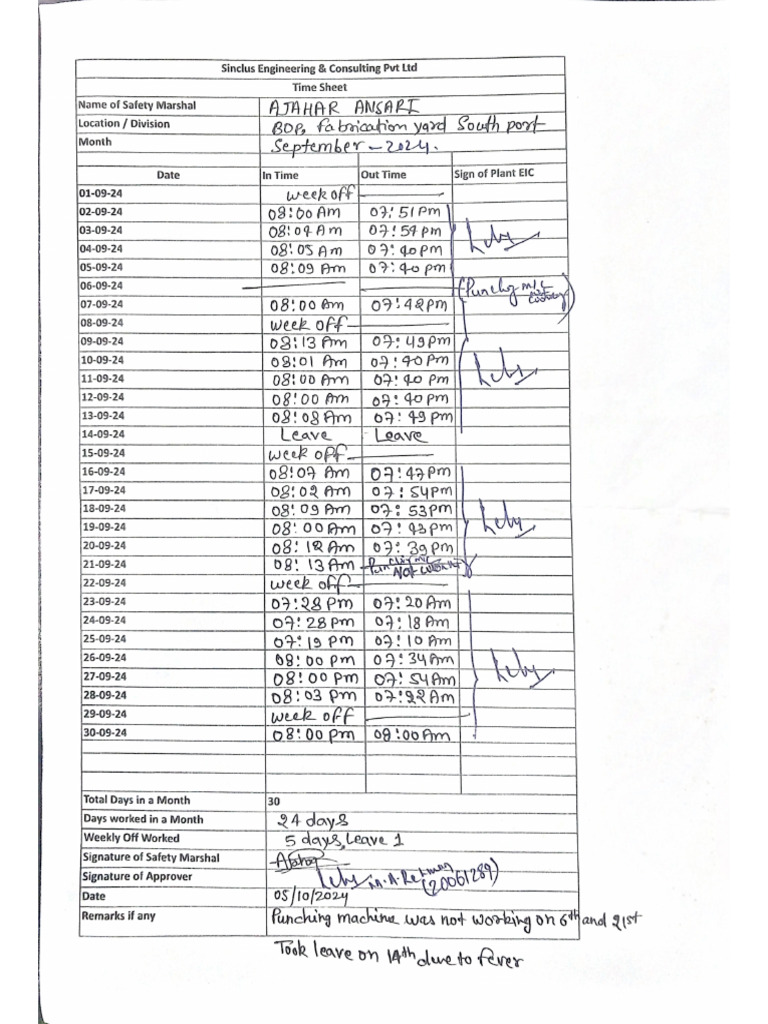 Sinclus Engineering & Consulting Pvt Ltd
Time Sheet
Name of Safety Marshal AJAHAR ANSARI
Location / Division BOP, Fabrication yard South port
Month September-2024.
Date In Time Out Time Sign of Plant EIC
01-09-24 week off
02-09-24 08:00 Am 07:51 Pm
03-09-24 08:04 Am 07:54 Pm
04-09-24 08:05 Am 07:40 Pm
05-09-24 08:09 Am 07:40 Pm
06-09-24 (Punchg m/c not
07-09-24 08:00 Am 07:42 Pm
08-09-24 week off
09-09-24 08:13 Am 07:49 Pm
10-09-24 08:01 Am 07:40 Pm
11-09-24 08:00 Am 07:40 Pm
12-09-24 08:00 Am 07:40 Pm
13-09-24 08:08 Am 07:49 Pm
14-09-24 Leave Leave
15-09-24 week off
16-09-24 08:07 Am 07:47 Pm
17-09-24 08:02 Am 07:54 Pm
18-09-24 08:09 Am 07:53 Pm
19-09-24 08:00 Am 07:43 Pm
20-09-24 08:12 Am 07:39 Pm
21-09-24 08:13 Am m/c Not
22-09-24 week off
23-09-24 07:28 Pm 07:20 Am
24-09-24 07:28 Pm 07:18 Am
25-09-24 07:19 Pm 07:10 Am
26-09-24 08:00 Pm 07:34 Am
27-09-24 08:00 Pm 07:54 Am
28-09-24 08:03 Pm 07:22 Am
29-09-24 week off
30-09-24 08:00 Pm 08:00 Am
Total Days in a Month 30
Days worked in a Month 24 days
Weekly Off Worked 5 days, Leave 1
Signature of Safety Marshal
Signature of Approver M.A. Rehman (20061289)
Date 05/10/2024
Remarks if any Punching machine was not working on 6th and 21st
Took leave on 14th due to fever